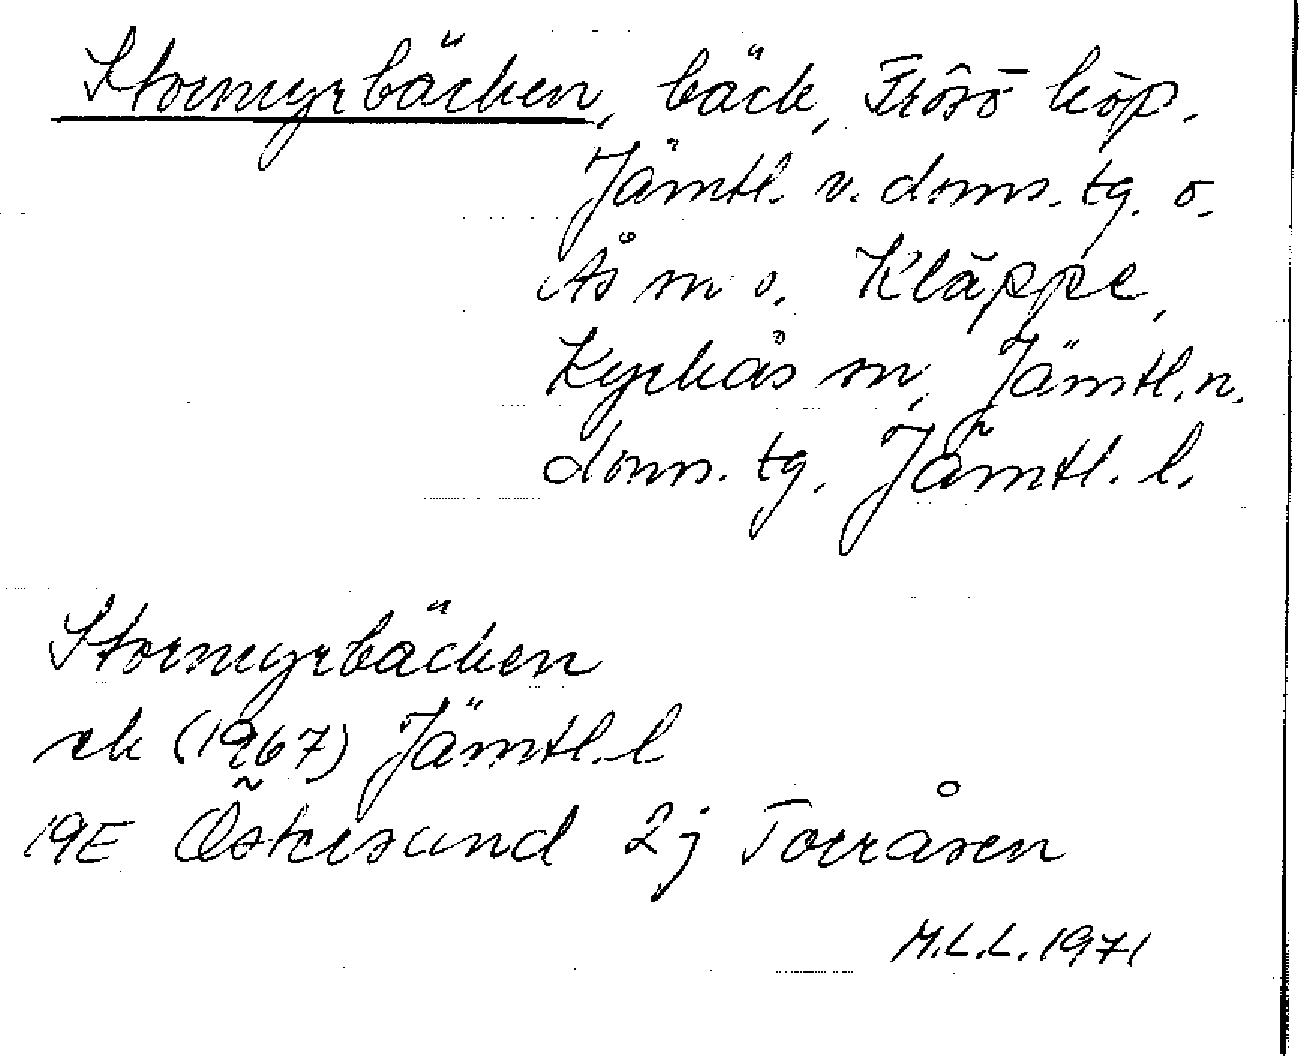 Stormyrbäcken, bäck, Frösö köp.
Jämtl. v. doms. tg. o.
Ås m o. Kläppe,
Kyrkås sn, Jämtl. n.
doms. tg. Jämtl. l.
Stormyrbäcken
ek (1967) Jämtl. l
19E Östersund 2j Torråsen
M.L.L. 1971